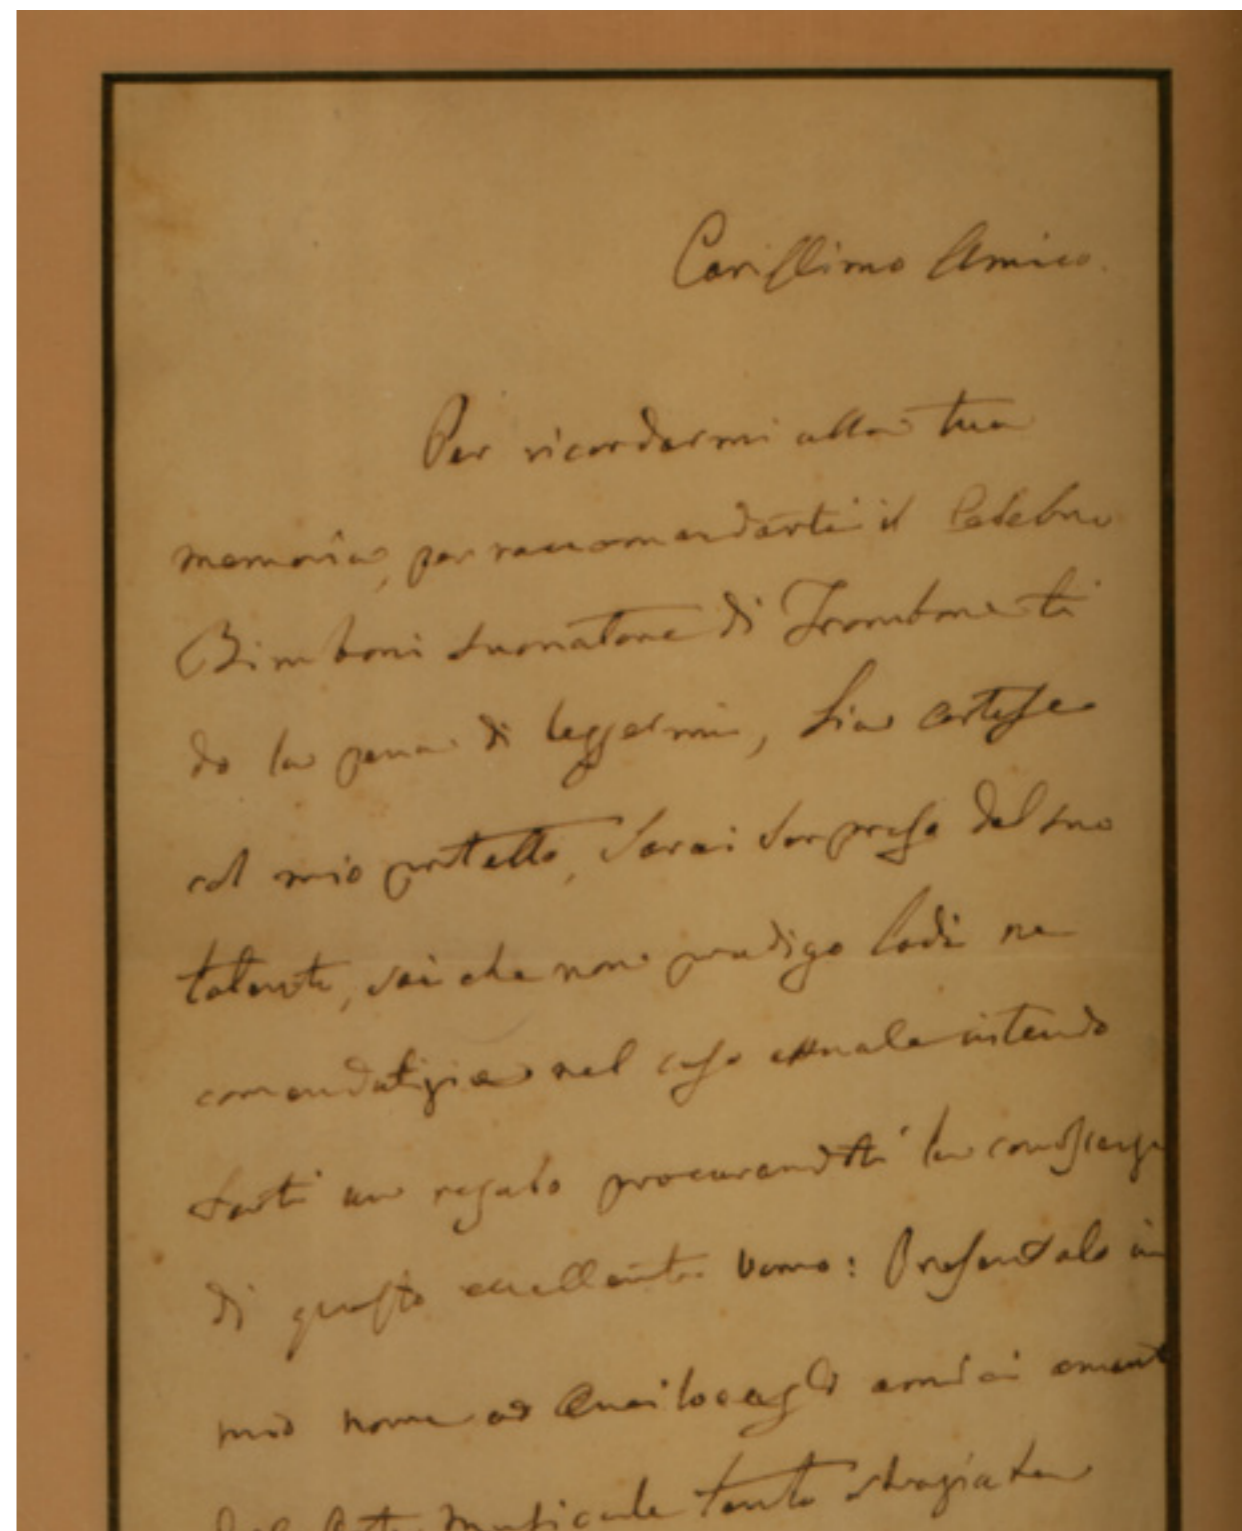 Carissimo Amico.
Per ricordarmi alla tua
memoria, per raccomandarti il Celebre
Bimboni suonatore di Trombone ti
do la pena di leggermi, Sia cortese
col mio protetto, Sarai sorpreso del suo
talento, sai che non prodigo lodi ne
comendatizie nel caso attuale intendo
farti un regalo procurandoti la conoscenza
di questo eccellente Uomo: Presentalo in
mio nome ad agli amici amanti
dell'Arte Musicale tanto straziata